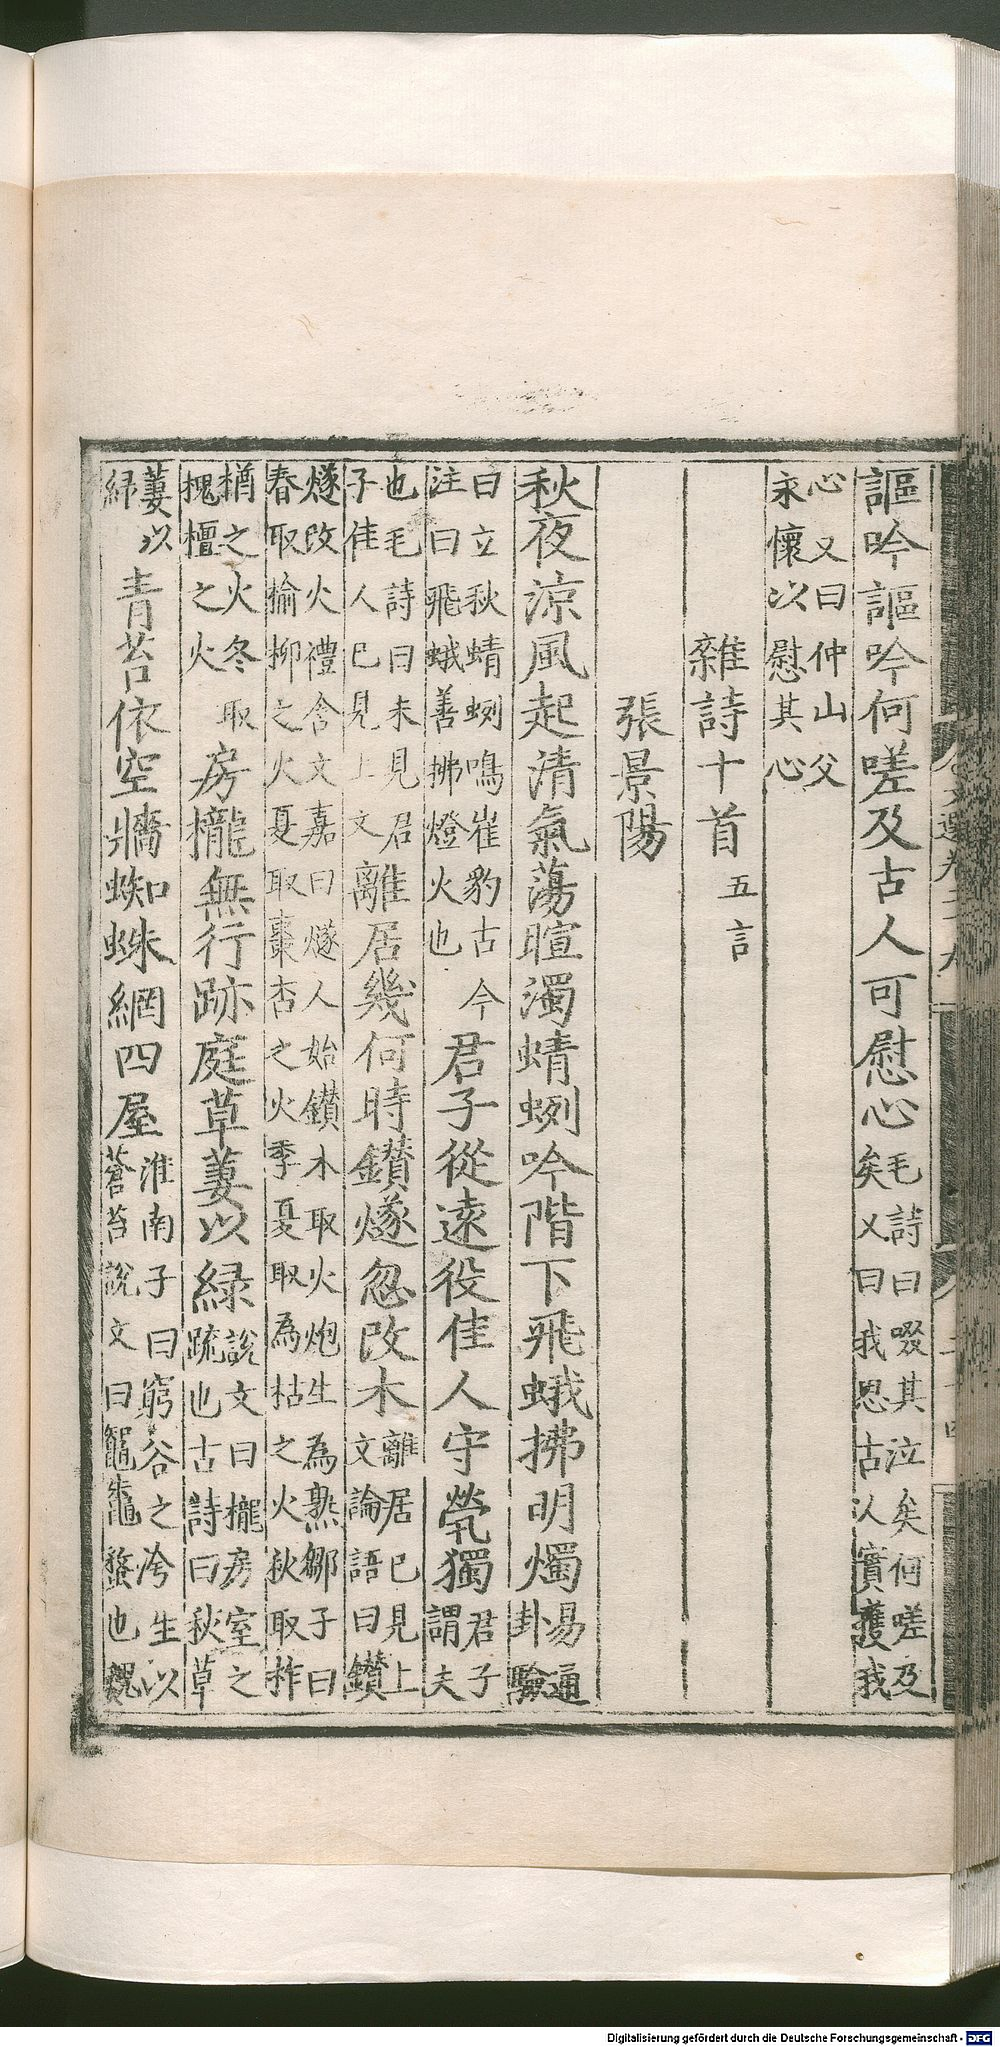 謳吟謳吟何嗟及古人可慰心毛詩曰啜其泣矣何嗟及矣又曰我思古人實獲我
心又曰仲山父永懷以慰其心
雜詩十首五言
張景陽
秋夜涼風起清氣蕩暄濁蜻蛚吟階下飛蛾拂明燭易通卦驗
曰立秋蜻蛚鳴崔豹古今注曰飛蛾善拂燈火也君子從遠役佳人守煢獨君子謂夫
也毛詩曰未見君子佳人已見上文離居幾何時鑚燧忽改木離居已見上文論語曰鑚
燧改火禮含文嘉曰燧人始鑚木取火炮生為熟鄒子曰春取榆柳之火夏取棗杏之火季夏取為枯之火秋取柞
楢之火冬取槐檀之火房櫳無行跡庭草萋以緑說文曰櫳房室之疏也古詩曰秋草
萋以緑青苔依空牆蜘蛛網四屋淮南子曰窮谷之洿生以蒼苔說文曰鼅鼄蝥也魏
Digitalisierung gefördert durch die Deutsche Forschungsgemeinschaft - DFG